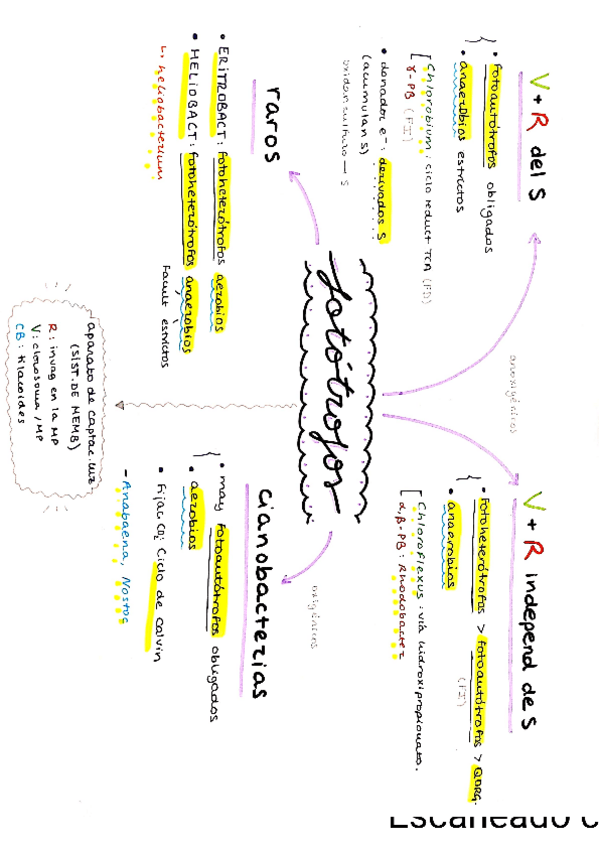 V + R del S
• fotoautótrofos obligados
• anaerobios estrictos
[ Chlorobium: ciclo reduct TCA (FD)
γ-PB (FII)
• donador e⁻: derivados S
(acumulan S)
oxidan sulfuro → S
raros
• ERITROBACT: fotoheterótrofos aerobios
• HELIOBACT: fotoheterótrofos anaerobios
Facult estrictos
↳ heliobacterium
fotótrofos
anoxigénicos
V + R independ de S
• fotoheterótrofos > fotoautótrofos > QORG.
(FII)
• anaerobios
[ Chloroflexus: vía hidroxipropionato.
α,β-PB: Rhodobacter
oxigénicos
cianobacterias
• may fotoautótrofos obligados
• aerobios
• Fijac CO₂: Ciclo de Calvin
- Anabaena, Nostoc
aparato de captac. luz
(SIST. DE MEMB)
R: invag en la MP
V: clorosoma / MP
CB: tilacoides
Escaneado c